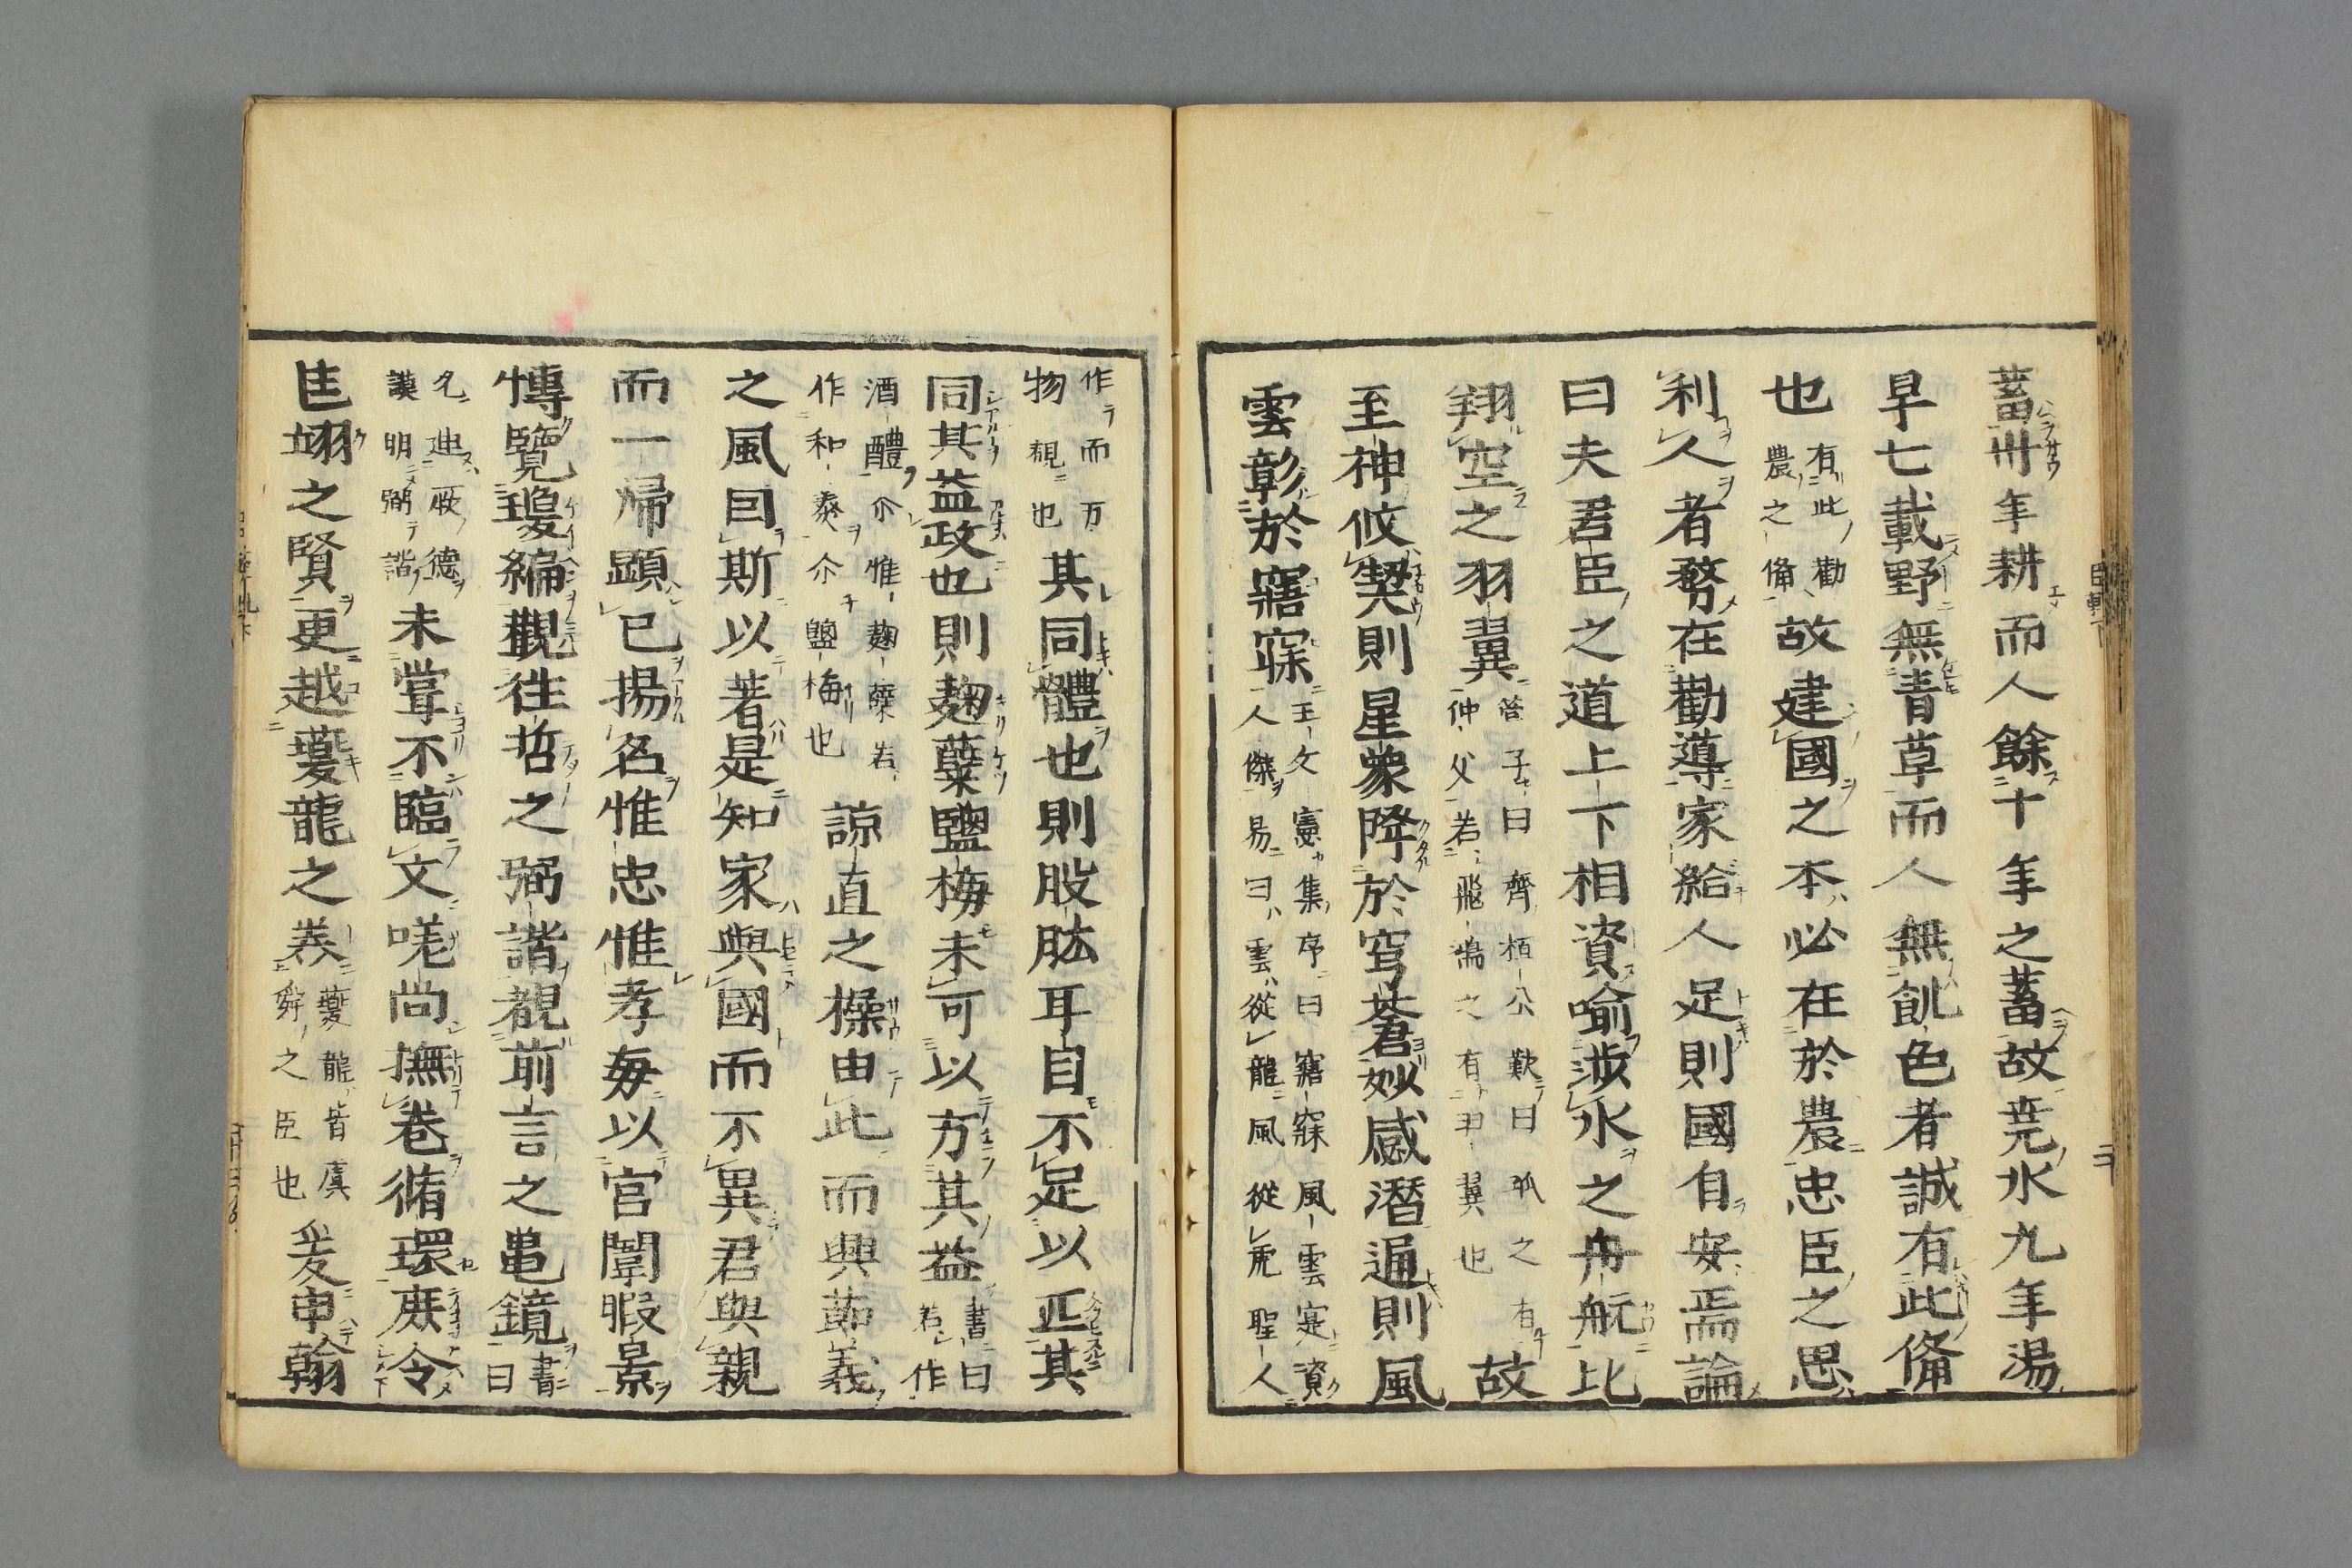 蓄卅年耕而人餘十年之蓄故尭水九年湯
早七載野無青草而人無飢色者誠有此備
也
有此勸
農之備
故建國之本必在於農忠臣之思
利人者務在勸導家給人足則國自安焉論
曰夫君臣之道上下相資喻涉水之舟航比
翔空之羽翼
管子曰齊桓公歎曰孤之有
仲父若飛鴻之有羽翼也
故
至神攸契則星象降於穹蒼妙感潛通則風
雲彰於寤寐
王文憲集序曰寤寐風雲寔資
人傑易曰雲從龍風從虎聖人
作而万
物覩也
其同體也則股肱耳目不足以正其
同其益政也則麹糵鹽梅未可以方其益
書曰若作
酒醴尒惟麹糵若
作和羹尒鹽梅也
諒直之操由此而興節義
之風因斯以著是知家與國而不異君與親
而一帰顕已揚名惟忠惟孝每以宮闈暇景
博覽瓊編觀往哲之弼諧覩前言之龜鏡
書曰
允迪厥德
謨明弼諧
未嘗不臨文嗟尚撫卷循環庶令
匡翊之賢更越夔龍之美
夔龍皆虞
舜之臣也
爰申翰
臣軌下
二十